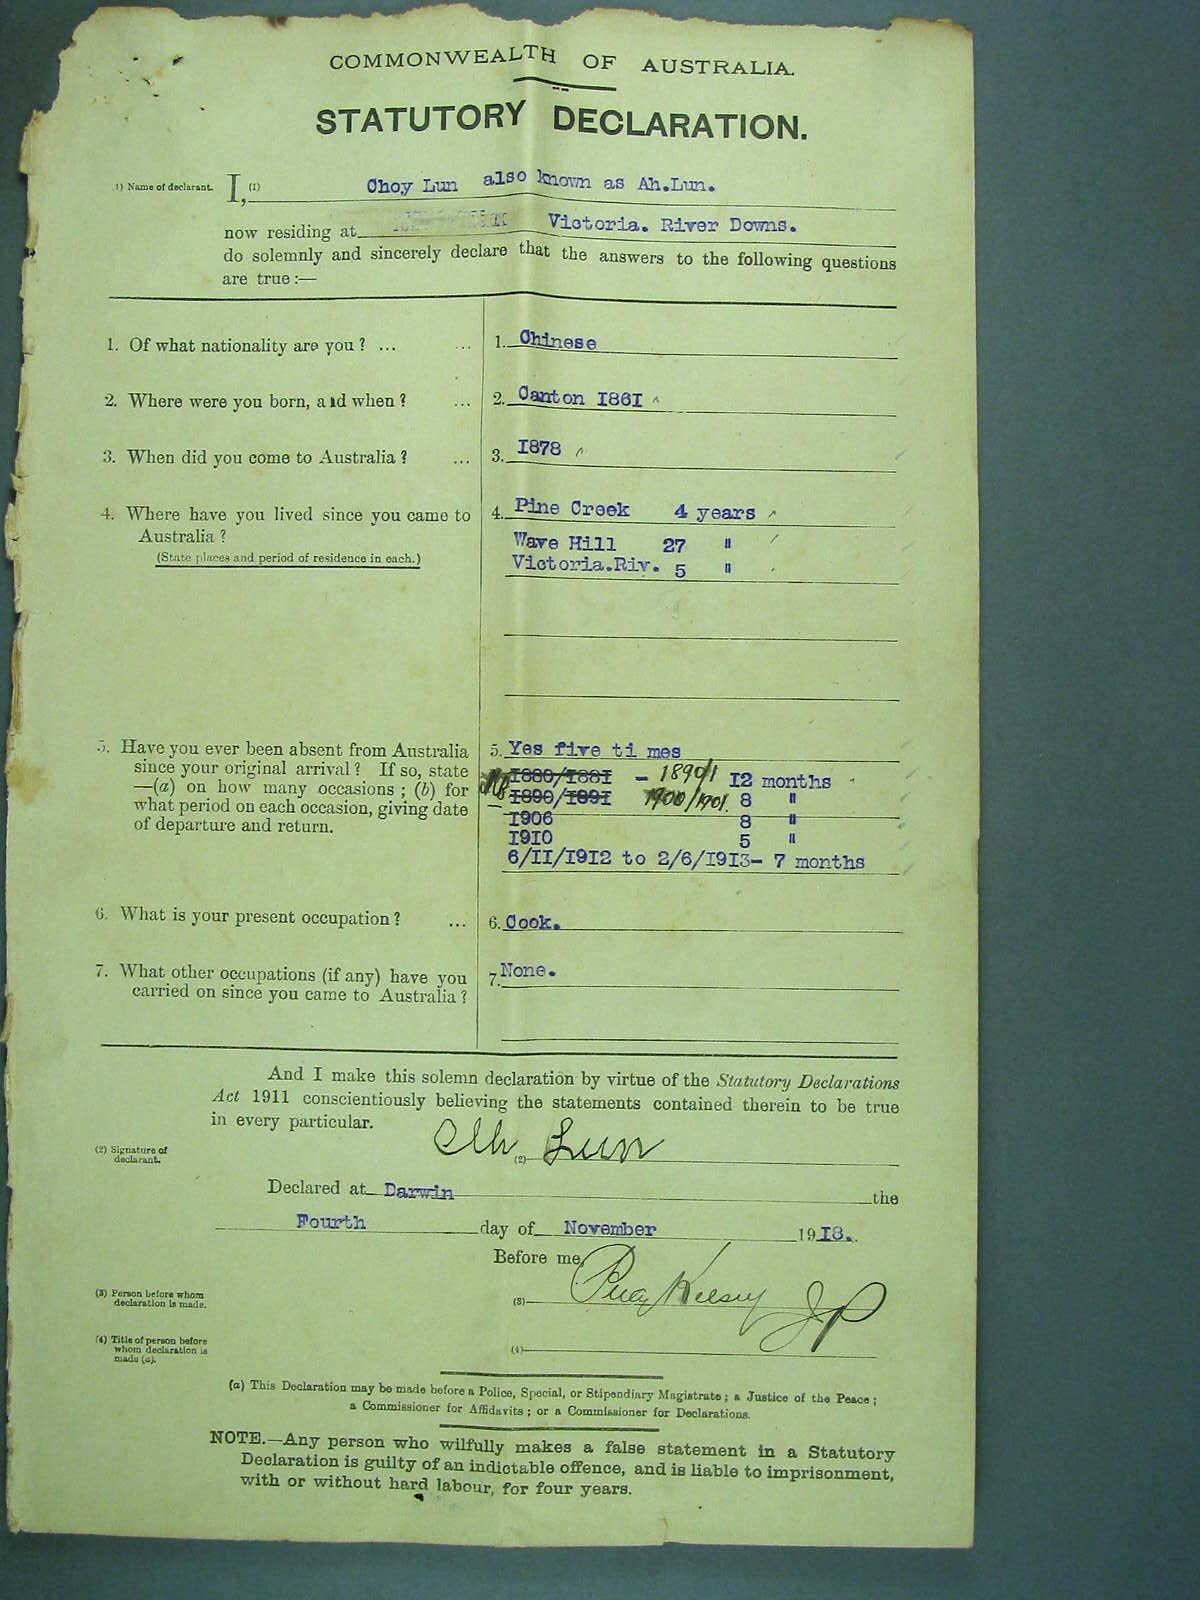 COMMONWEALTH OF AUSTRALIA.
STATUTORY DECLARATION.
1) Name of declarant. I, (1) Choy Lun also known as Ah.Lun.
now residing at Victoria. River Downs.
do solemnly and sincerely declare that the answers to the following questions
are true :—
1. Of what nationality are you ? ... ... 1. Chinese
2. Where were you born, and when ? ... 2. Canton I86I
3. When did you come to Australia ? ... 3. I878
4. Where have you lived since you came to 4. Pine Creek 4 years
Australia ? Wave Hill 27 "
(State places and period of residence in each.) Victoria.Riv. 5 "
5. Have you ever been absent from Australia 5. Yes five ti mes
since your original arrival ? If so, state I880/I88I – 1890/1 I2 months
—(a) on how many occasions ; (b) for I890/I89I 1900/1901. 8 "
what period on each occasion, giving date I906 8 "
of departure and return. I9IO 5 "
6/II/I9I2 to 2/6/I9I3- 7 months
6. What is your present occupation ? ... 6. Cook.
7. What other occupations (if any) have you 7. None.
carried on since you came to Australia ?
And I make this solemn declaration by virtue of the Statutory Declarations
Act 1911 conscientiously believing the statements contained therein to be true
in every particular.
(2) Signature of declarant. (2) Ah Lun
Declared at Darwin the
Fourth day of November 19I8.
Before me,
(3) Person before whom declaration is made. (3) Percy Kelsey JP
(4) Title of person before whom declaration is made (a). (4)
(a) This Declaration may be made before a Police, Special, or Stipendiary Magistrate ; a Justice of the Peace ;
a Commissioner for Affidavits ; or a Commissioner for Declarations.
NOTE.—Any person who wilfully makes a false statement in a Statutory
Declaration is guilty of an indictable offence, and is liable to imprisonment,
with or without hard labour, for four years.